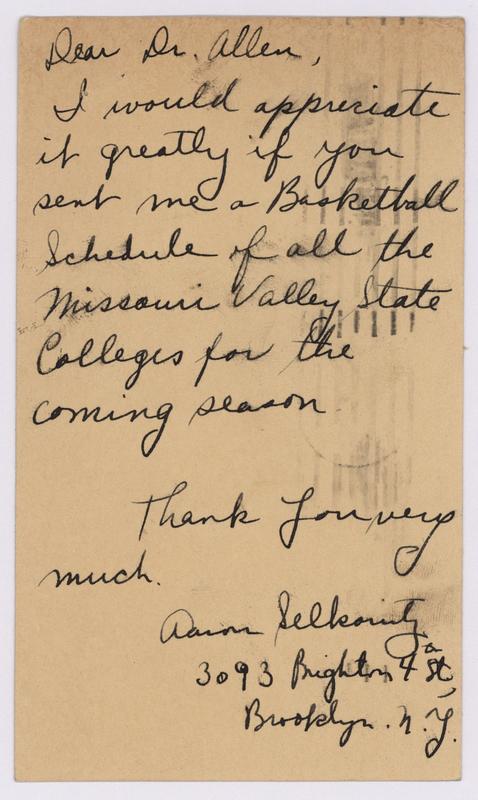 Dear Dr. Allen,
I would appreciate
it greatly if you
sent me a Basketball
Schedule of all the
Missouri Valley State
Colleges for the
coming season.
Thank you very
much.
Aaron Selkowitz
3093 Brighton 4 St,
Brooklyn. N.Y.